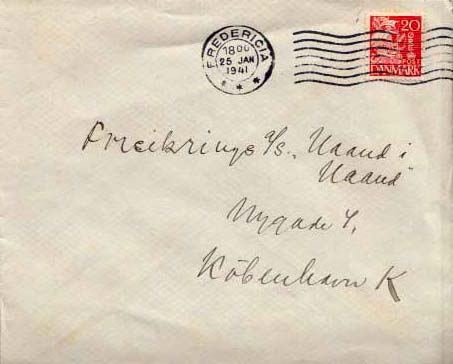 FREDERICIA
1800
25 JAN
1941
20
POST
DANMARK
Forsikrings A/s. „Haand i
Haand"
Nygade 4,
København K